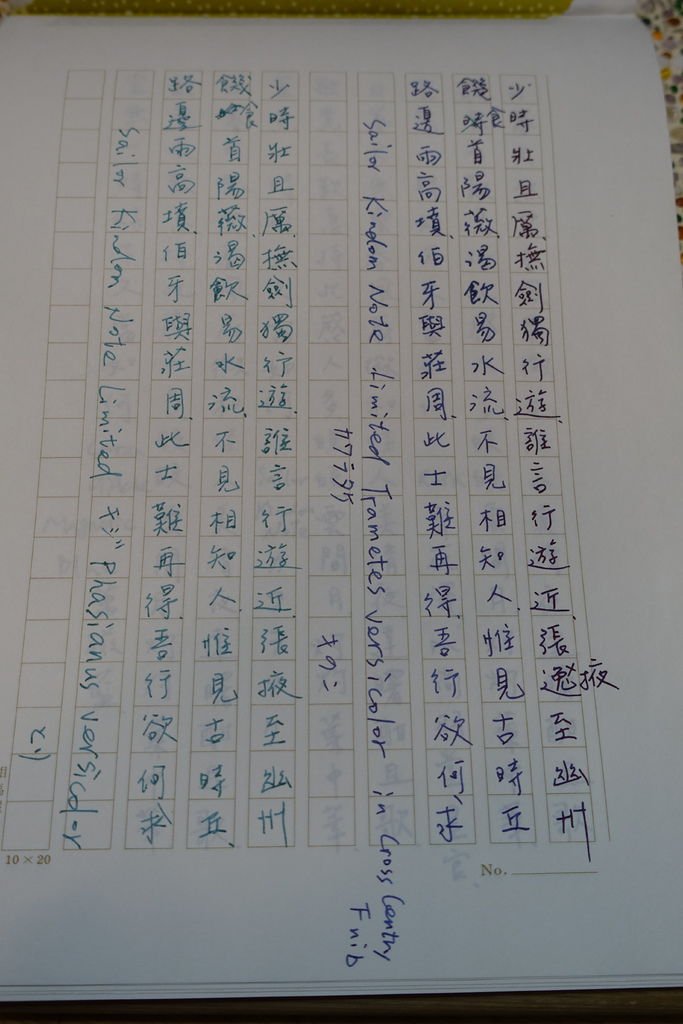 少時壯且厲、撫劍獨行遊、誰言行遊近、張掖至幽州
饑食首陽薇、渴飲易水流、不見相知人、惟見古時丘
路邊兩高墳、伯牙與莊周、此士難再得、吾行欲何求
Sailor Kindom Note Limited Trametes versicolor in Cross Centry
F nib
カワラタケ
キノコ
少時壯且厲、撫劍獨行遊、誰言行遊近、張掖至幽州
饑食首陽薇、渴飲易水流、不見相知人、惟見古時丘、
路邊兩高墳、伯牙與莊周、此士難再得、吾行欲何求
Sailor Kindom Note Limited キジ Phasianus versicolor
No.
10×20